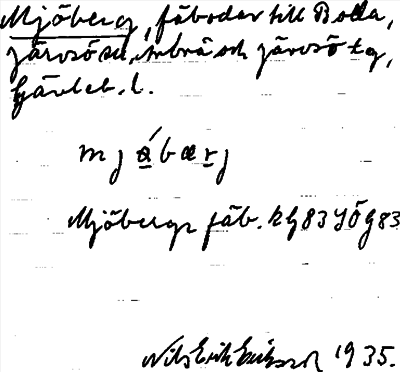 Mjöberg, fäbodar till Bolla,
Järvsö sn, Arbrå och Järvsö tg,
Gävleb. l.
mjǻbærj
Mjöbergs fäb. kG83SÖg83
Nils Erik Eriksson 1935.